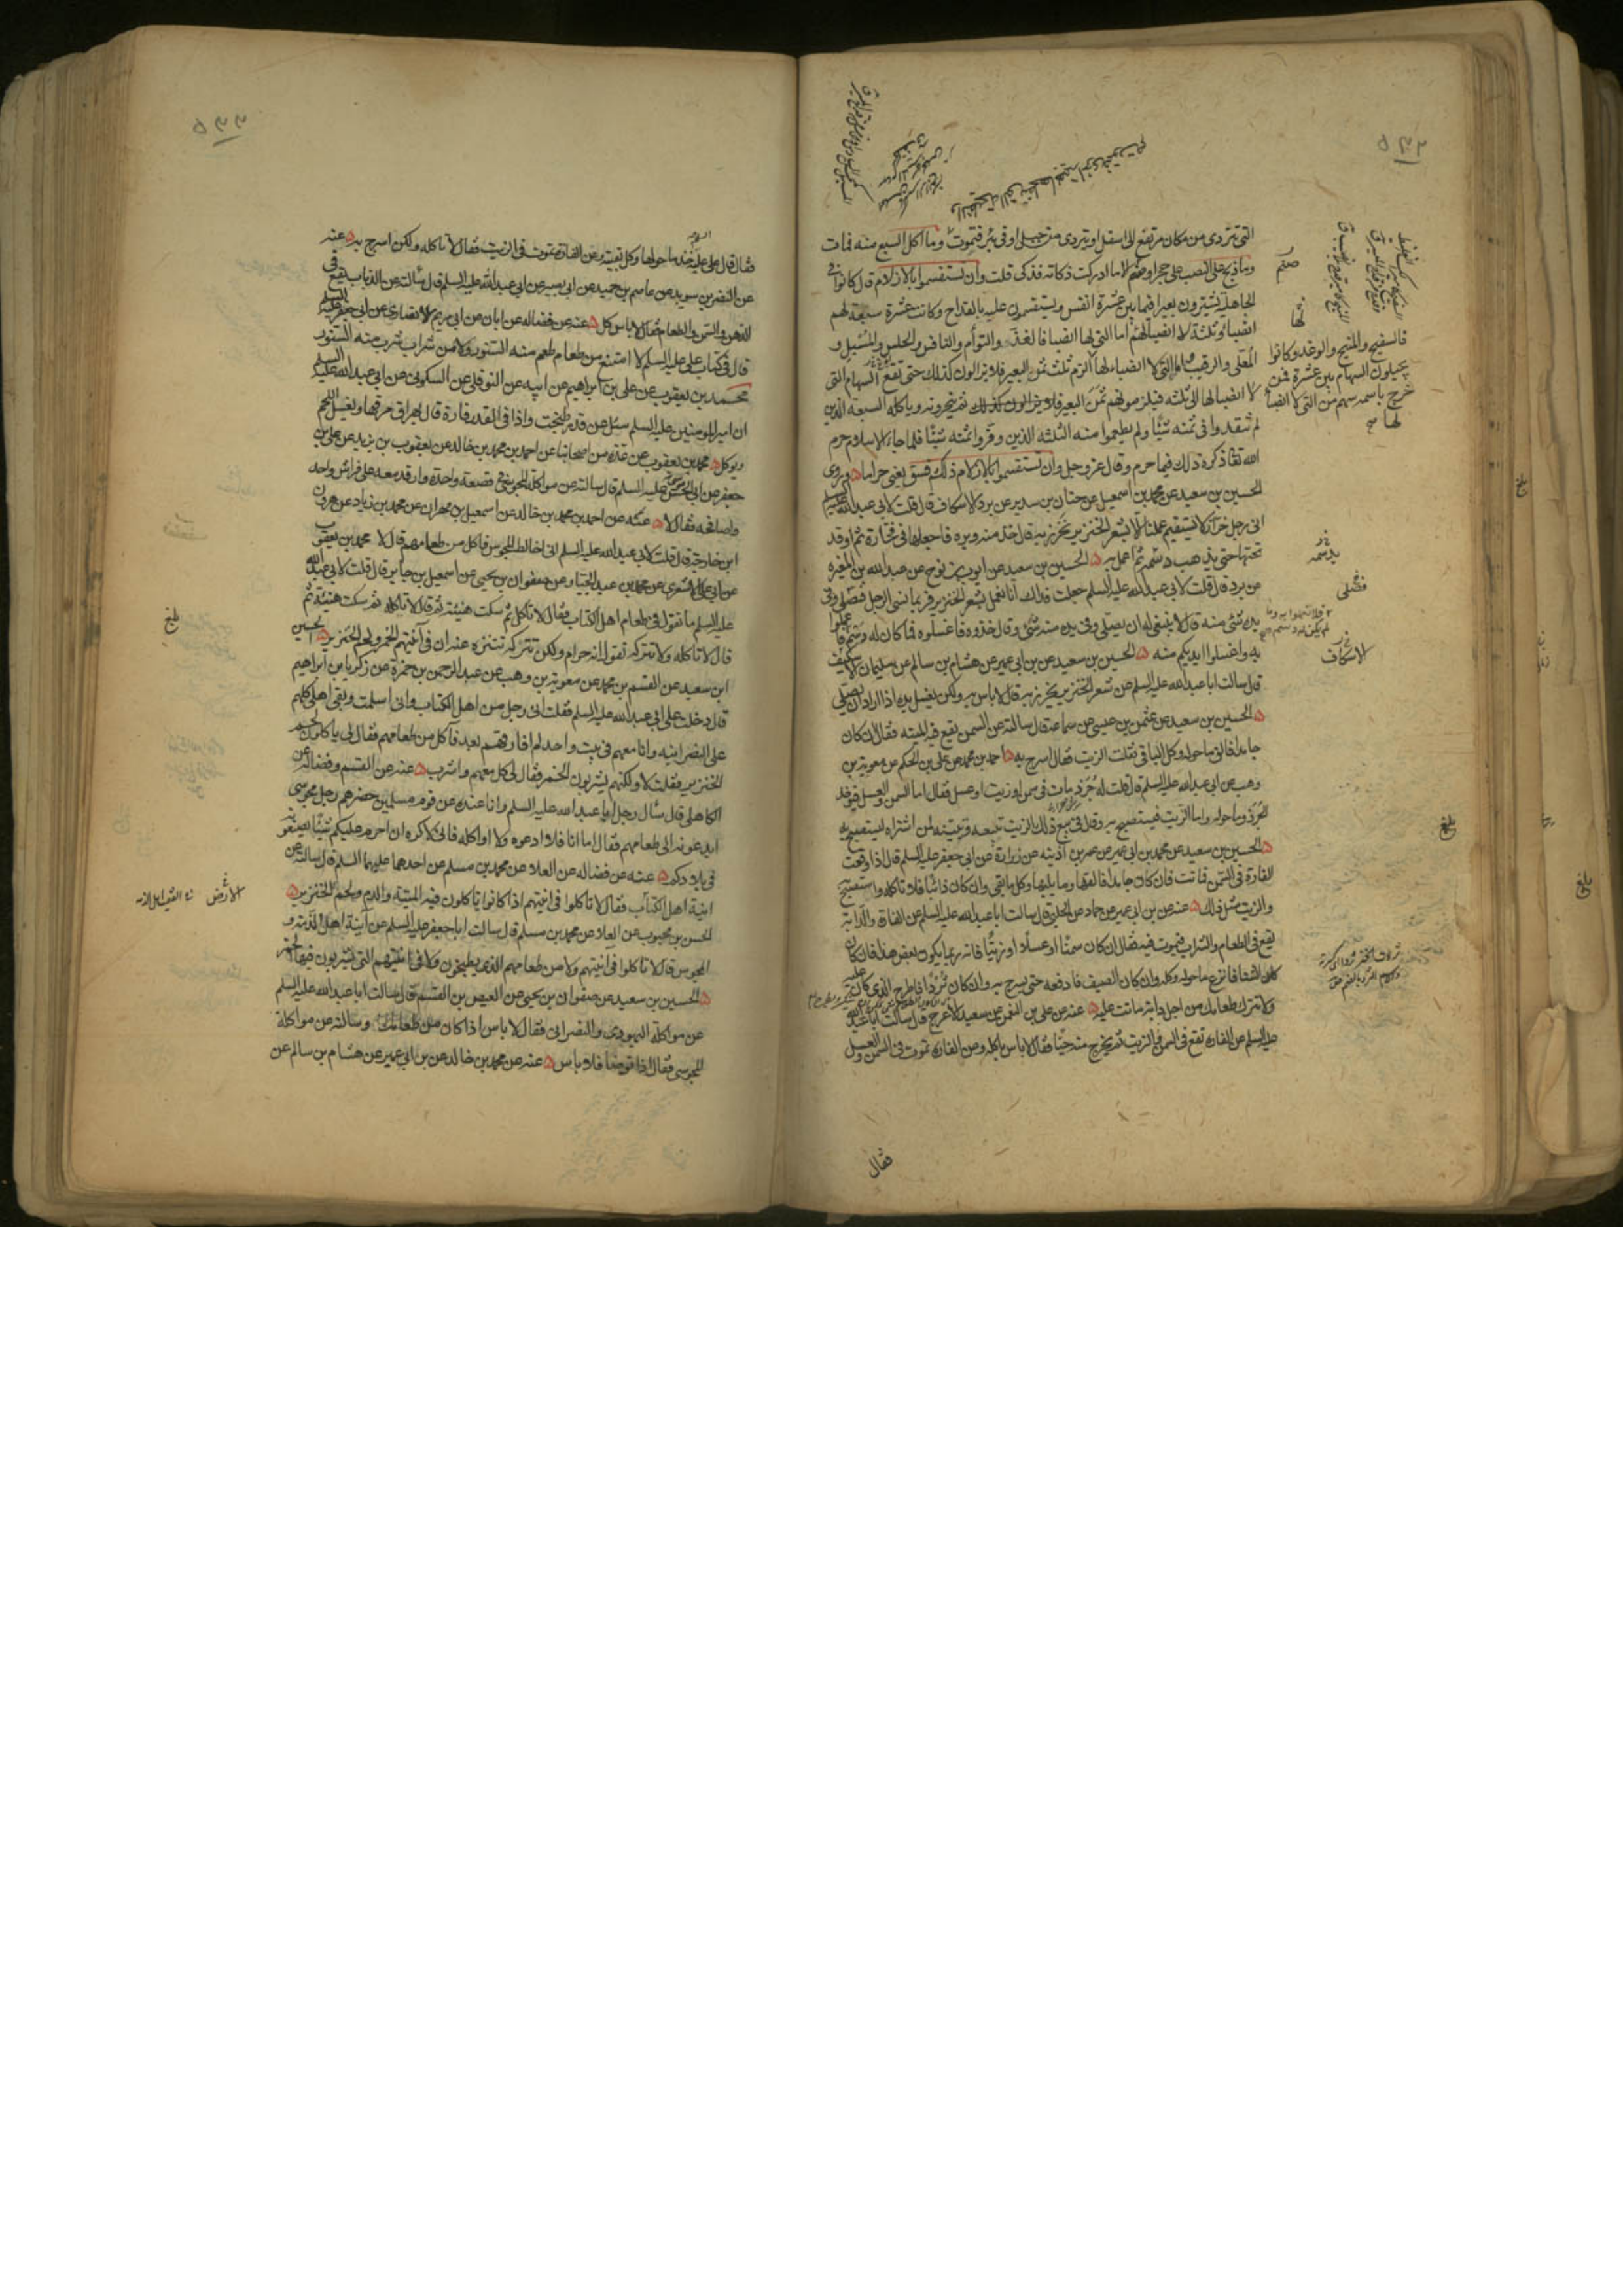 التي تتردى من مكان مرتفع الى اسفل او تتردى من جبل او في بئر فتموت وما اكل السبع منه فمات
وما ذبح على النصب على حجر او صنم الا ما ادركت ذكاته فذكى قلت وان تستقسموا بالازلام قال كانوا في
الجاهلية يشترون بعيرا فيما بين عشرة انفس ويستقسمون عليه بالقداح وكانت عشرة سبعة لهم
انصباء وثلثة لا انصباء لهم اما التي لها انصباء فالفذ والتوأم والنافس والحلس والمسبل و
المعلى والرقيب واما التي لا انصباء لها
فالسفيح والمنيح والوغد وكانوا
يجيلون السهام بين عشرة فمن
خرج باسمه سهم من التي لا انصباء
لها
الزم ثلث ثمن البعير فلا يزالون كذلك حتى تقع السهام التي
لا انصباء لها الى ثلثة فيلزمونهم ثمن البعير ثم ينحرونه وياكله السبعة الذين
لم ينقدوا في ثمنه شيئا ولم يطعموا منه الثلثة الذين وفروا ثمنه شيئا فلما جاء الاسلام حرم
الله تعالى ذكره ذلك فيما حرم وقال عز وجل وان تستقسموا بالازلام ذلكم فسق يعني حراما وروى
الحسين بن سعيد عن محمد بن اسمعيل عن حنان بن سدير عن برد الاسكاف قال قلت لابي عبدالله عليه السلم
اني رجل خراز لا يستقيم عملنا الا بشعر الخنزير نخرز به قال خذ منه وبره فاجعلها في فخارة ثم اوقد
تحتها حتى يذهب دسمه ثم اعمل به الحسين بن سعيد عن ايوب بن نوح عن عبدالله بن المغيرة
عن برد قال قلت لابي عبدالله عليه السلم جعلت فداك انا نعمل بشعر الخنزير فربما نسي الرجل فصلى وفي
يده شئ منه قال لا ينبغي له ان يصلي وفي يده منه شئ وقال خذوه فاغسلوه فما كان له دسم فلا
به واغسلوا ايديكم منه الحسين بن سعيد عن بن ابي عمير عن هشام بن سالم عن سليمان الاسكاف
قال سالت ابا عبدالله عليه السلم عن شعر الخنزير يخرز به قال لا باس به ولكن يغسل يده اذا اراد ان يصلي
الحسين بن سعيد عن عثمن بن عيسى عن سماعة قال سالته عن السمن تقع فيه الميتة فقال ان كان
جامدا فالق ما حوله وكل الباقي فقلت الزيت فقال اسرج به احمد بن محمد عن علي بن الحكم عن معوية بن
وهب عن ابي عبدالله عليه السلم قال قلت له جرذ مات في سمن او زيت او عسل فقال اما السمن والعسل فيؤخذ
الجرذ وما حوله واما الزيت فيستصبح به وقال في بيع ذلك الزيت تبيعه وتبينه لمن اشتراه ليستصبح به
الحسين بن سعيد عن محمد بن ابي عمير عن عمر بن اذينة عن زرارة عن ابي جعفر عليه السلم قال اذا وقعت
الفارة في السمن فماتت فان كان جامدا فالقها وما يليها وكل ما بقي وان كان ذائبا فلا تاكله واستصبح
والزيت مثل ذلك عنه عن بن ابي عمير عن حماد عن الحلبي قال سالت ابا عبدالله عليه السلم عن الفارة والدابة
تقع في الطعام والشراب فتموت فيه فقال ان كان سمنا او عسلا او زيتا فانه ربما يكون بعض هذا فان كان
الشتا فانزع ما حوله وكله وان كان الصيف فادفعه حتى يسرج به وان كان ثردا فاطرح الذي كان عليه
ولا تترك طعامك من اجل دابة ماتت عليه عنه عن علي بن النعمن عن سعيد الاعرج قال سالت ابا عبد الله
عليه السلم عن الفارة تقع في السمن والزيت ثم يخرج منه حيا فقال لا باس باكله وعن الفارة تموت في السمن والعسل
صنم
لها
يذهب دسمه
فصلى
الاسكاف
بلغ
فقال
فقال قال علي عليه السلم خذ ما حولها وكل بقيته وعن الفارة تموت في الزيت فقال لا تاكله ولكن اسرج به عنه
عن النضر بن سويد عن عاصم بن حميد عن ابي بصير عن ابي عبدالله عليه السلم قال سالته عن الذباب يقع في
الدهن والسمن والطعام فقال لا باس كل عنه عن فضالة عن ابان عن ابي مريم الانصاري عن ابي جعفر عليه السلم
قال في كتاب علي عليه السلم لا امتنع من طعام طعم منه السنور ولا من شراب شرب منه السنور
محمد بن يعقوب عن علي بن ابراهيم عن ابيه عن النوفلي عن السكوني عن ابي عبدالله عليه السلم
ان امير المومنين عليه السلم سئل عن قدر طبخت واذا في القدر فارة قال يهراق مرقها ويغسل اللحم
ويوكل محمد بن يعقوب عن عدة من اصحابنا عن احمد بن محمد بن خالد عن يعقوب بن يزيد عن علي بن
جعفر عن ابي الحسن موسى عليه السلم قال سالته عن مواكلة المجوسي في قصعة واحدة وارقد معه على فراش واحد
واصافحه فقال لا عنه عن احمد بن محمد بن خالد عن اسمعيل بن مهران عن محمد بن زياد عن هرون
ابن خارجة قال قلت لابي عبدالله عليه السلم اني اخالط المجوس فاكل من طعامهم قال لا محمد بن يعقوب
عن ابي علي الاشعري عن محمد بن عبد الجبار عن صفوان بن يحيى عن اسمعيل بن جابر قال قلت لابي عبدالله
عليه السلم ما تقول في طعام اهل الكتاب فقال لا تاكله ثم سكت هنيئة ثم قال لا تاكله ثم سكت هنيئة ثم
قال لا تاكله ولا تتركه تقول انه حرام ولكن تتركه تتنزه عنه ان في آنيتهم الخمر ولحم الخنزير الحسين
ابن سعيد عن القسم بن محمد عن معوية بن وهب عن عبد الرحمن بن حمزة عن زكريا بن ابراهيم
قال دخلت على ابي عبدالله عليه السلم فقلت اني رجل من اهل الكتاب واني اسلمت وبقي اهلي كلهم
على النصرانية وانا معهم في بيت واحد لم افارقهم بعد فآكل من طعامهم فقال لي ياكلون لحم
الخنزير فقلت لا ولكنهم يشربون الخمر فقال لي كل معهم واشرب عنه عن القسم وفضالة عن
الكاهلي قال سال رجل ابا عبدالله عليه السلم وانا عنده عن قوم مسلمين حضرهم رجل مجوسي
ايدعونه الى طعامهم فقال اما انا فلا ادعوه ولا اواكله فاني لاكره ان احرم عليكم شيئا تصنعونه
في بلادكم عنه عن فضالة عن العلا عن محمد بن مسلم عن احدهما عليهما السلم قال سالته عن
انية اهل الكتاب فقال لا تاكلوا في انيتهم اذا كانوا ياكلون فيه الميتة والدم ولحم الخنزير
الحسن بن محبوب عن العلا عن محمد بن مسلم قال سالت ابا جعفر عليه السلم عن آنية اهل الذمة و
المجوس قال لا تاكلوا في آنيتهم ولا من طعامهم الذي يطبخون ولا في انيتهم التي يشربون فيها الخمر
الحسين بن سعيد عن صفوان بن يحيى عن العيص بن القسم قال سالت ابا عبدالله عليه السلم
عن مواكلة اليهودي والنصراني فقال لا باس اذا كان من طعامك وسالته عن مواكلة
المجوسي فقال اذا توضا فلا باس عنه عن محمد بن خالد عن بن ابي عمير عن هشام بن سالم عن
بلغ